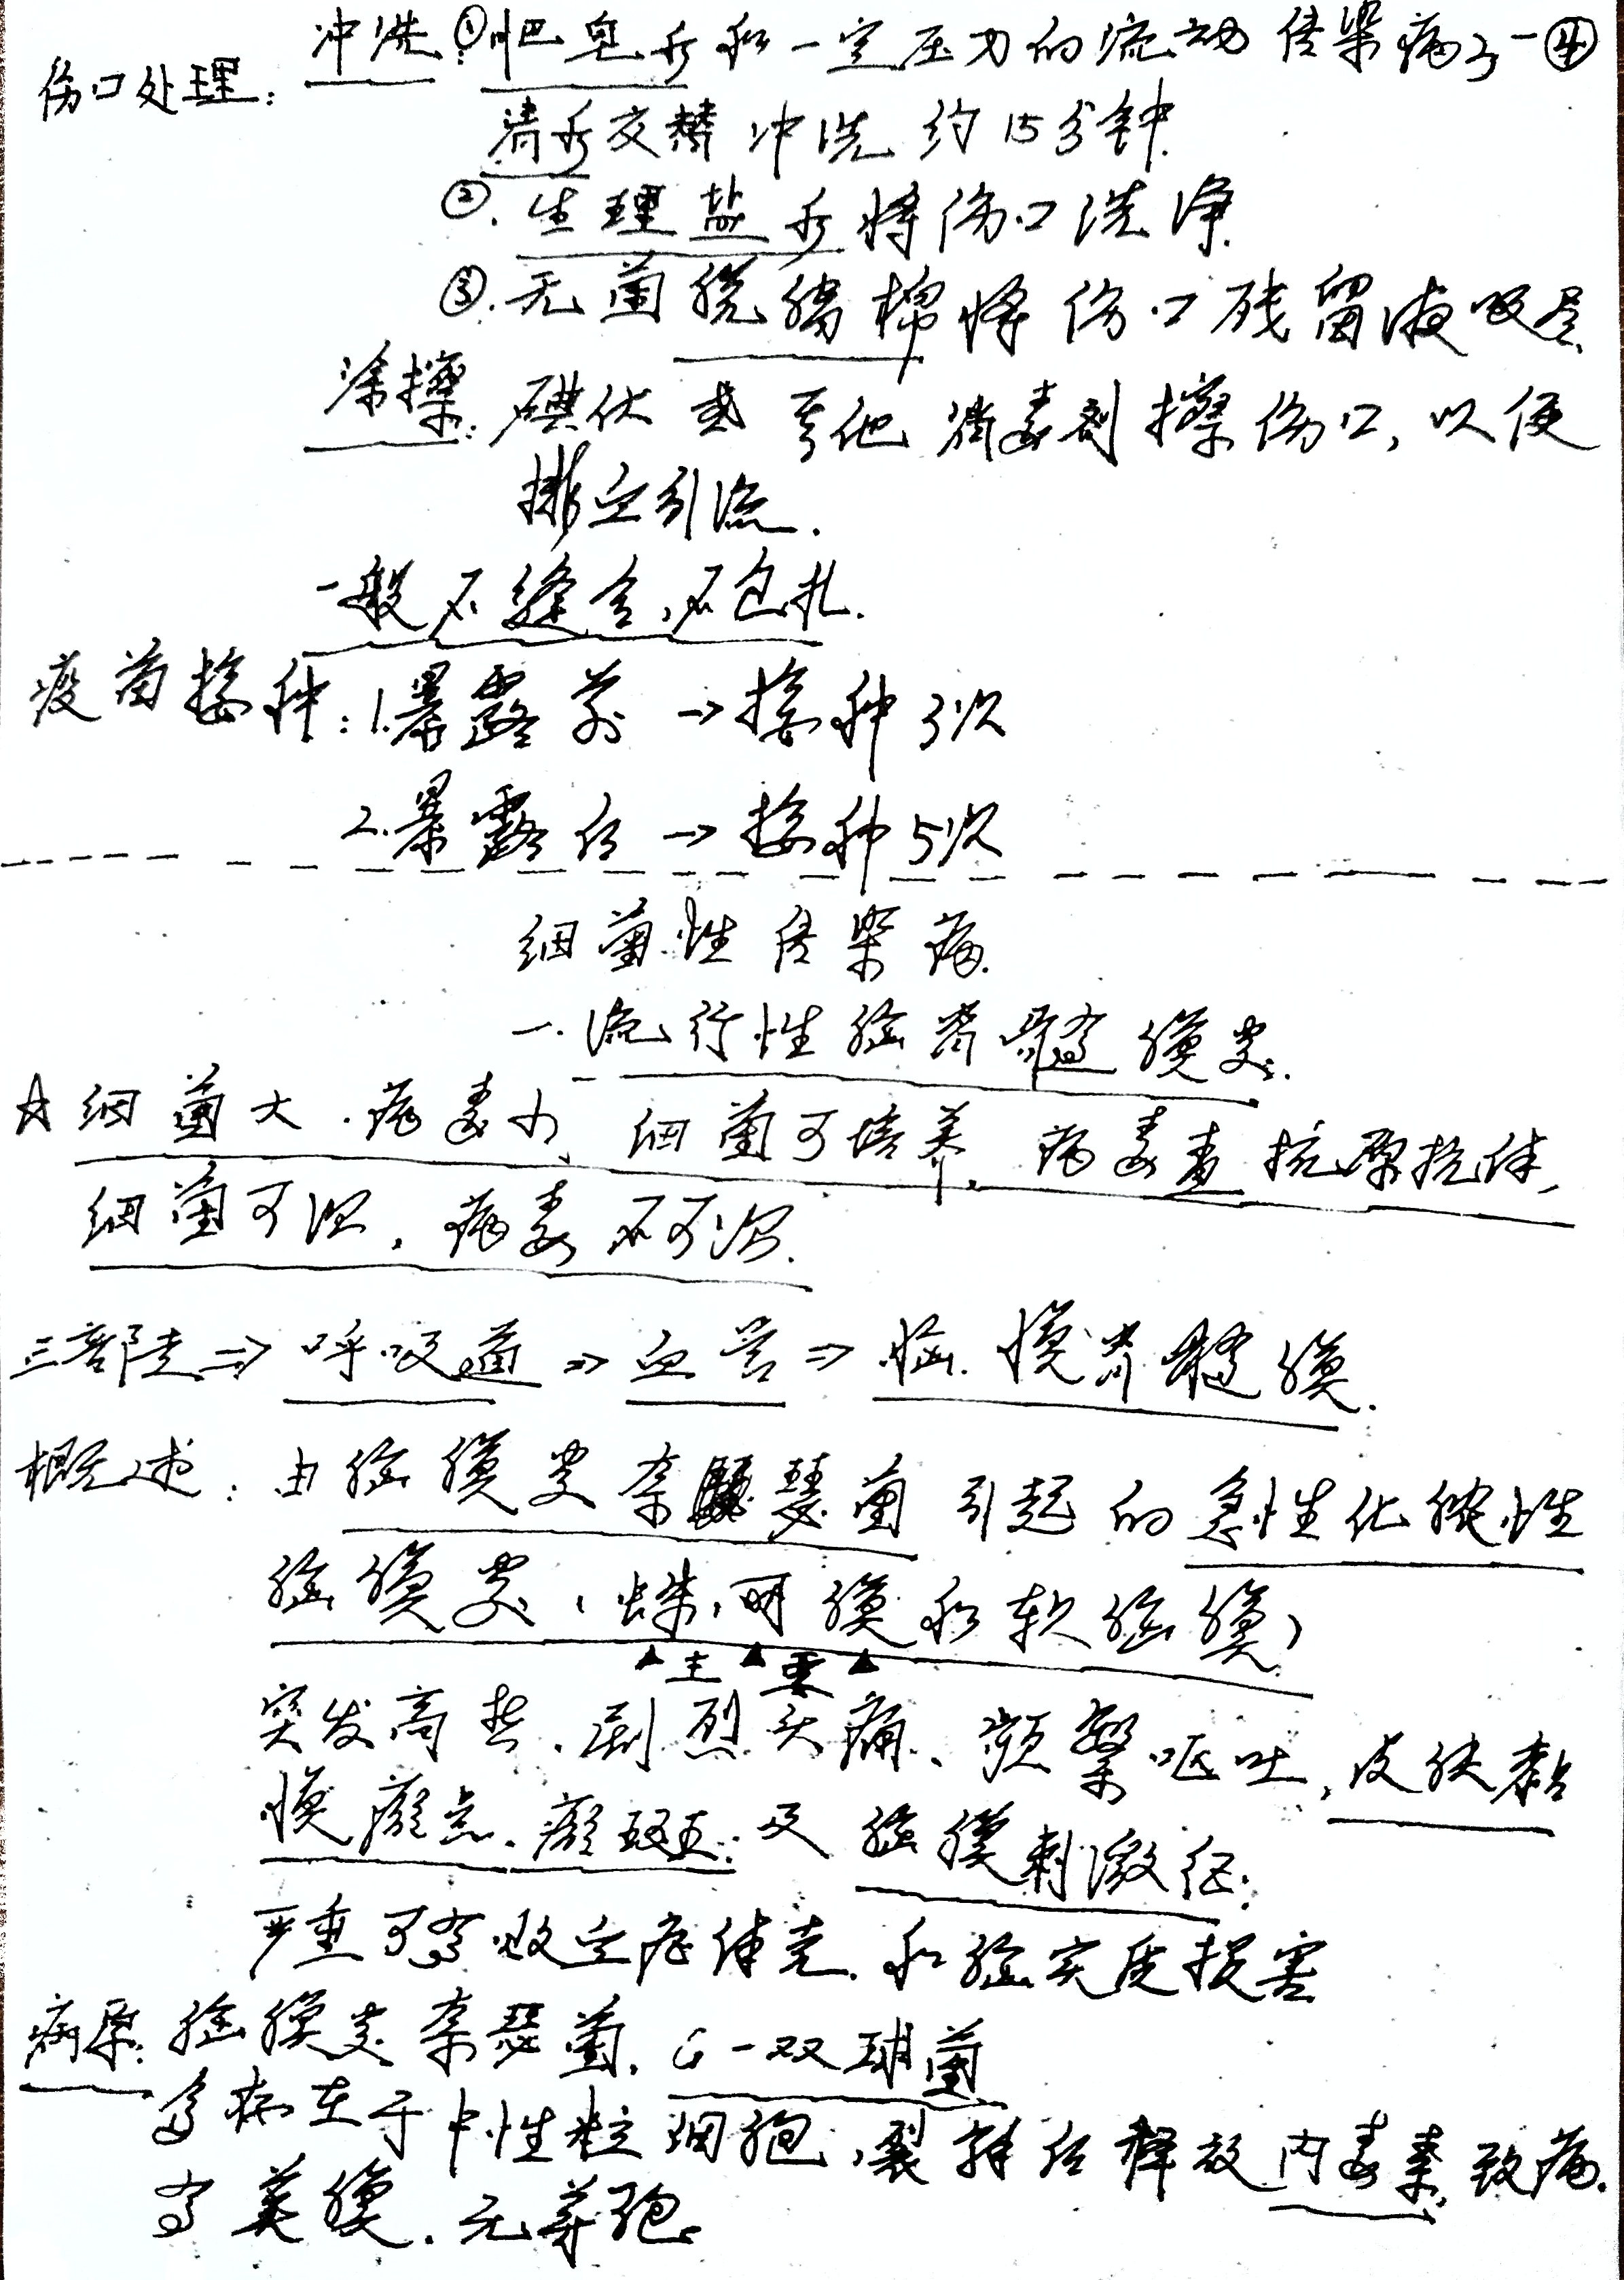 传染病学-④
伤口处理: 冲洗: ①肥皂水和一定压力的流动
清水交替冲洗约15分钟.
②.生理盐水将伤口洗净.
③.无菌脱脂棉将伤口残留液吸尽.
涂擦: 碘伏或其他消毒剂擦伤口,以便
排血引流.
一般不缝合,不包扎.
疫苗接种: 1.暴露前→接种3次
2.暴露后→接种5次
细菌性传染病.
一.流行性脑脊髓膜炎.
☆细菌大.病毒小、细菌可培养,病毒查抗原抗体,
细菌可治,病毒不可治.
三部走⇒呼吸道⇒血管⇒脑.膜脊髓膜.
概述: 由脑膜炎奈瑟菌引起的急性化脓性
脑膜炎,蛛网膜和软脑膜,
主要
突发高热.剧烈头痛、频繁呕吐,皮肤黏
膜瘀点.瘀斑.及脑膜刺激征.
严重可有败血症休克.和脑实质损害
病原: 脑膜炎奈瑟菌. G-双球菌
多存在于中性粒细胞,裂解后释放内毒素致病.
有荚膜.无芽孢.